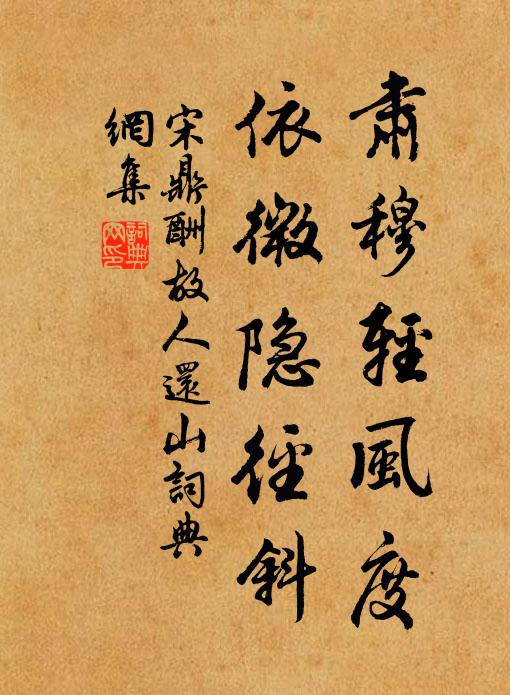 肅穆輕風度
依微隐徑斜
宋鼎酬故人還山詞典
網集
詞典網印